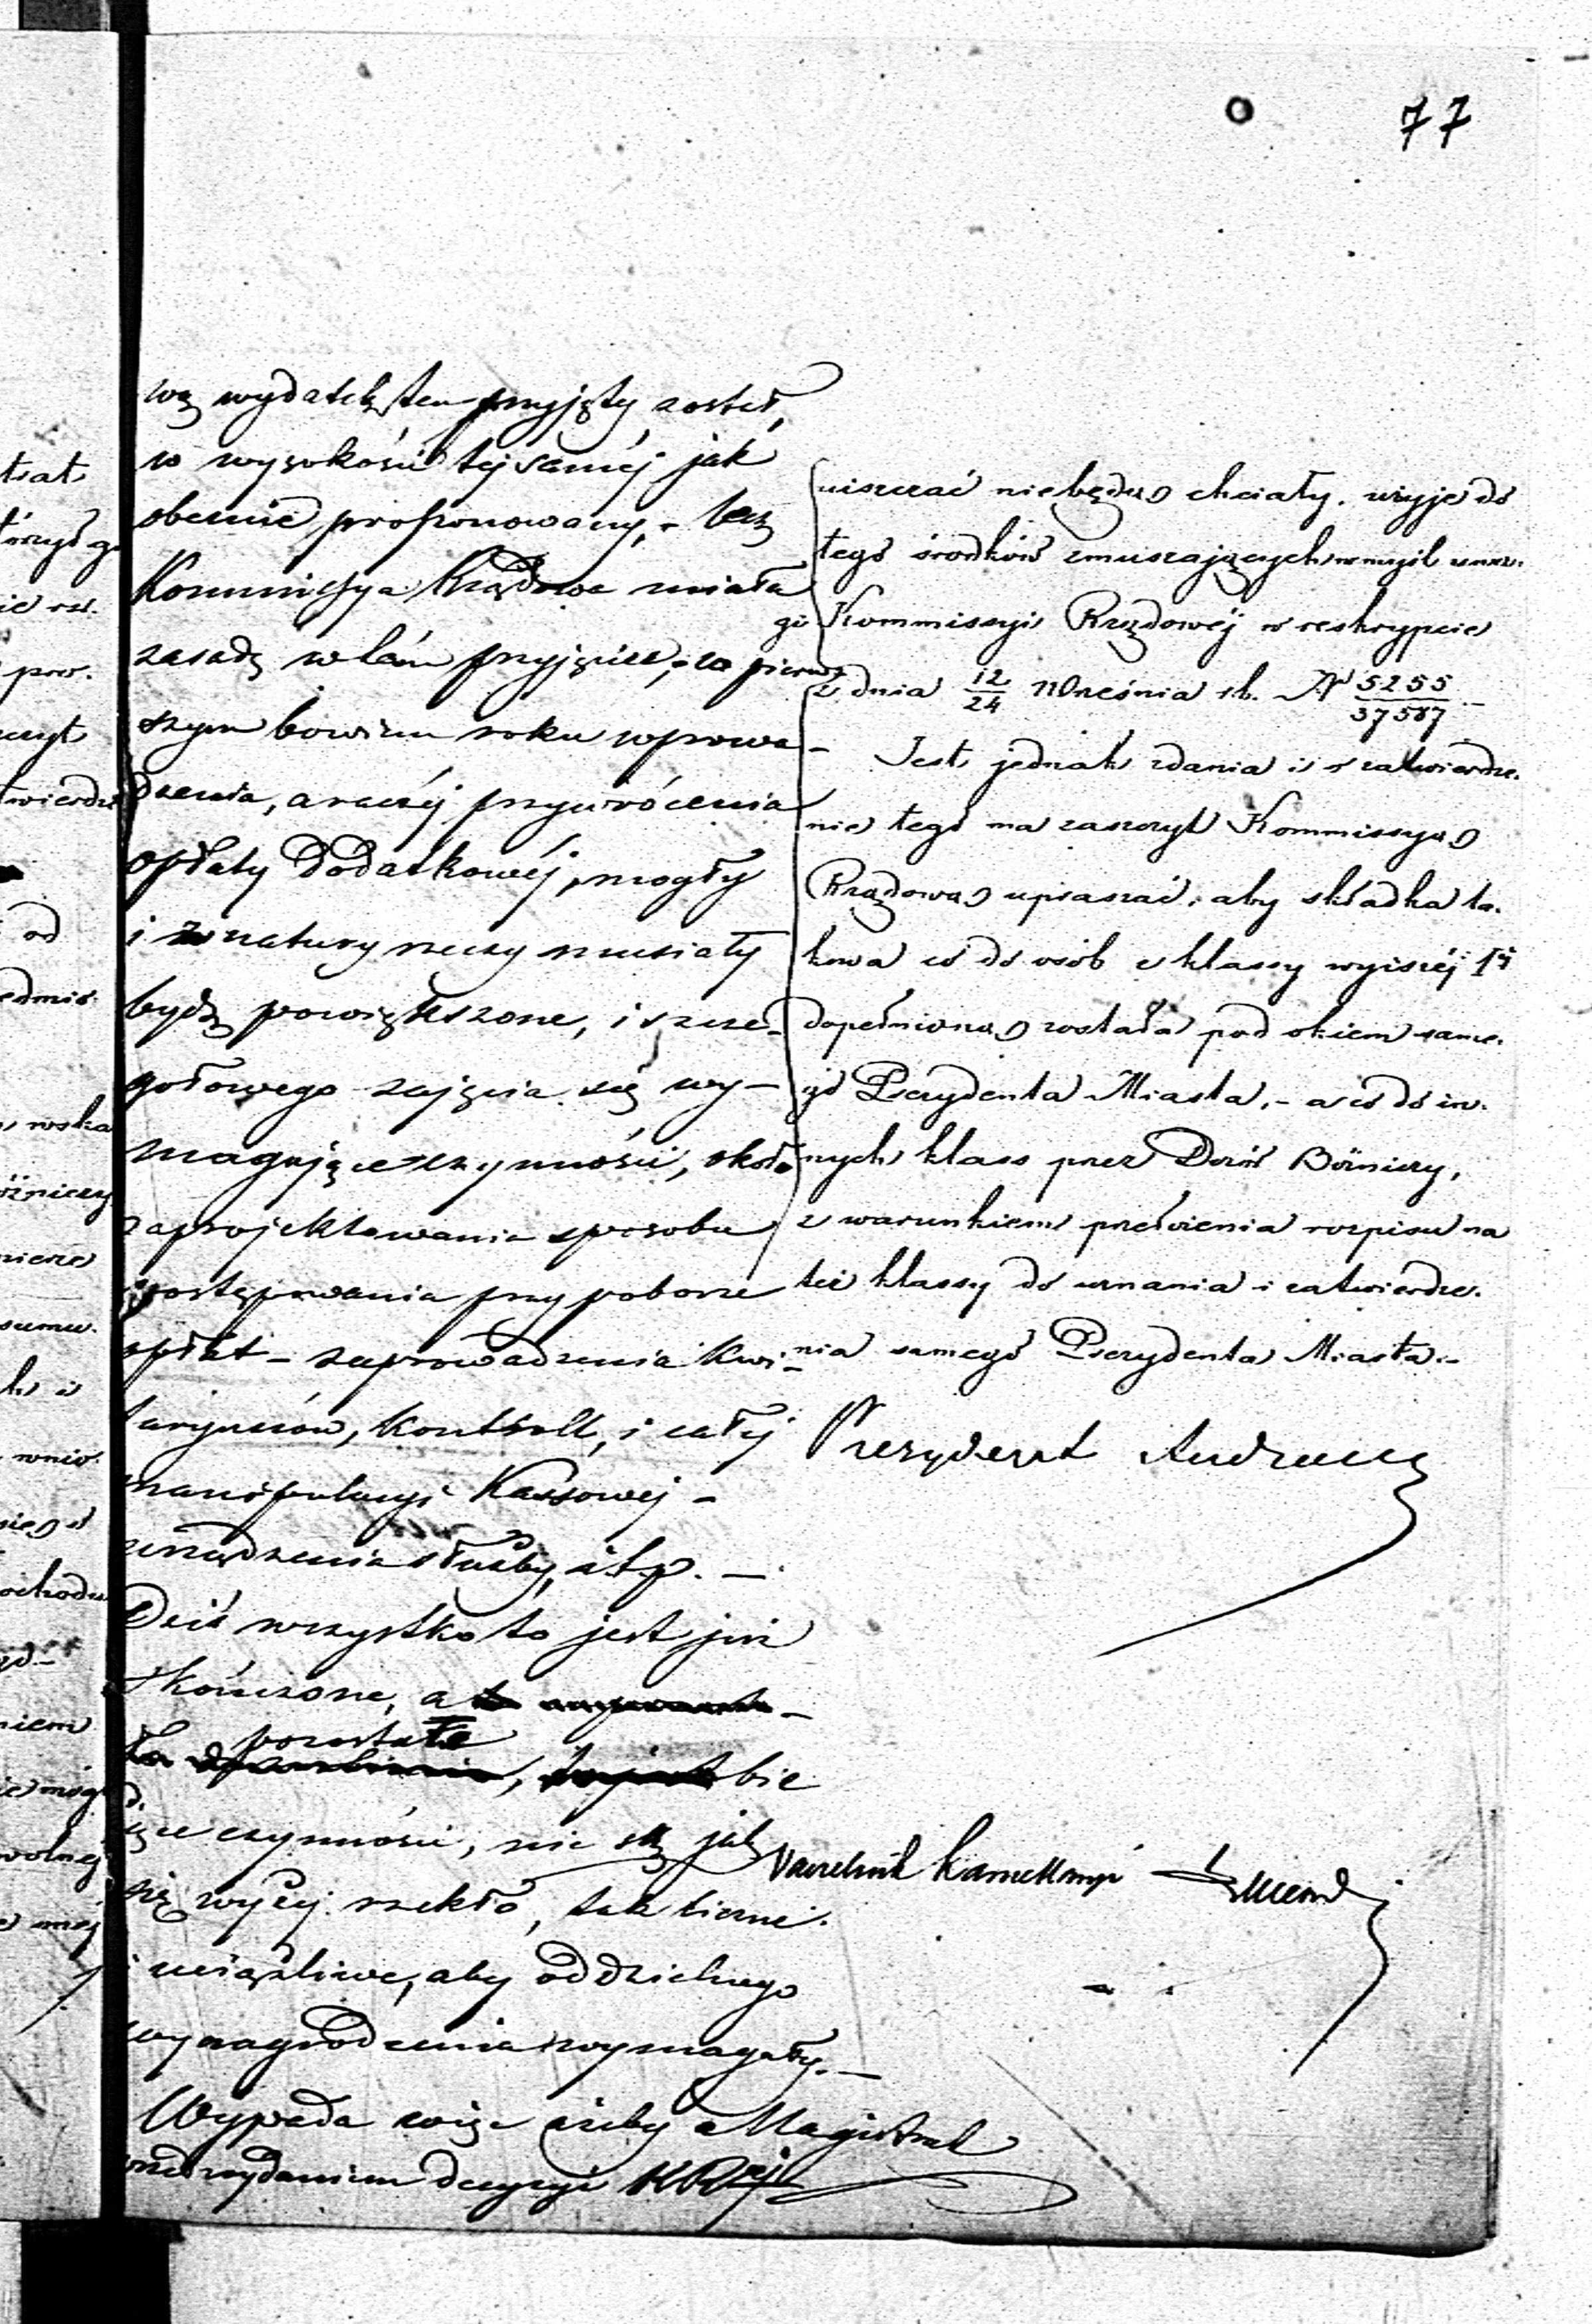 77
wą wydatek ten przyjęty został,
w wysokości tej saméj jak
obecnie proponowany, - lecz
Kommissya Rządowa miała
zasadę w tém przyjęciu, w pierw
szym bowiem roku wprowa-
dzenia, a raczéj przywrócenia
opłaty dodatkowéj, mogły
i z natury rzeczy musiały
bydź powiększone, i szcze-
gołowego zajęcia się wy-
magające czynności, około
zaprojektowania sposobu
postępowania przy poborze
opłat - zaprowadzenia Kwi-
taryuszów, kontroll, i całéj
manipulacyi Kassowéj -
urządzenia służby, itp. -
Dziś wszystko to jest już
skończone, a
pozostałe
bie
żące czynności, nie są jak
się wyżéj rzekło, tak liczne
i uciążliwe, aby oddzielnego
wynagrodzenia wymagały. -
Wypada więc ażeby Magistrat
przed wydaniem decyzyi KRéj
uiszczać niebędą chciały, użyje do
tego środków zmuszających w myśl uwa.
gi Kommissyi Rządowéj w reskrypcie
z dnia 12/24 Września r.b. № 5255/37587 -
Jest jednak zdania iż o zatwierdze.
nie tego ma zaszczyt Kommissyą
Rządową upraszać, aby składka ta.
kowa co do osób z klassy wyższéj 1éj
dopełnioną została pod okiem same.
go Prezydenta Miasta, - a co do in.
nych klass przez Dozór Bóźniczy,
z warunkiem przedstawienia rozpisu na
też klassy do uznania i zatwierdze.
nia samego Prezydenta Miasta. -
Prezydent Andrault
Naczelnik Kancellaryi